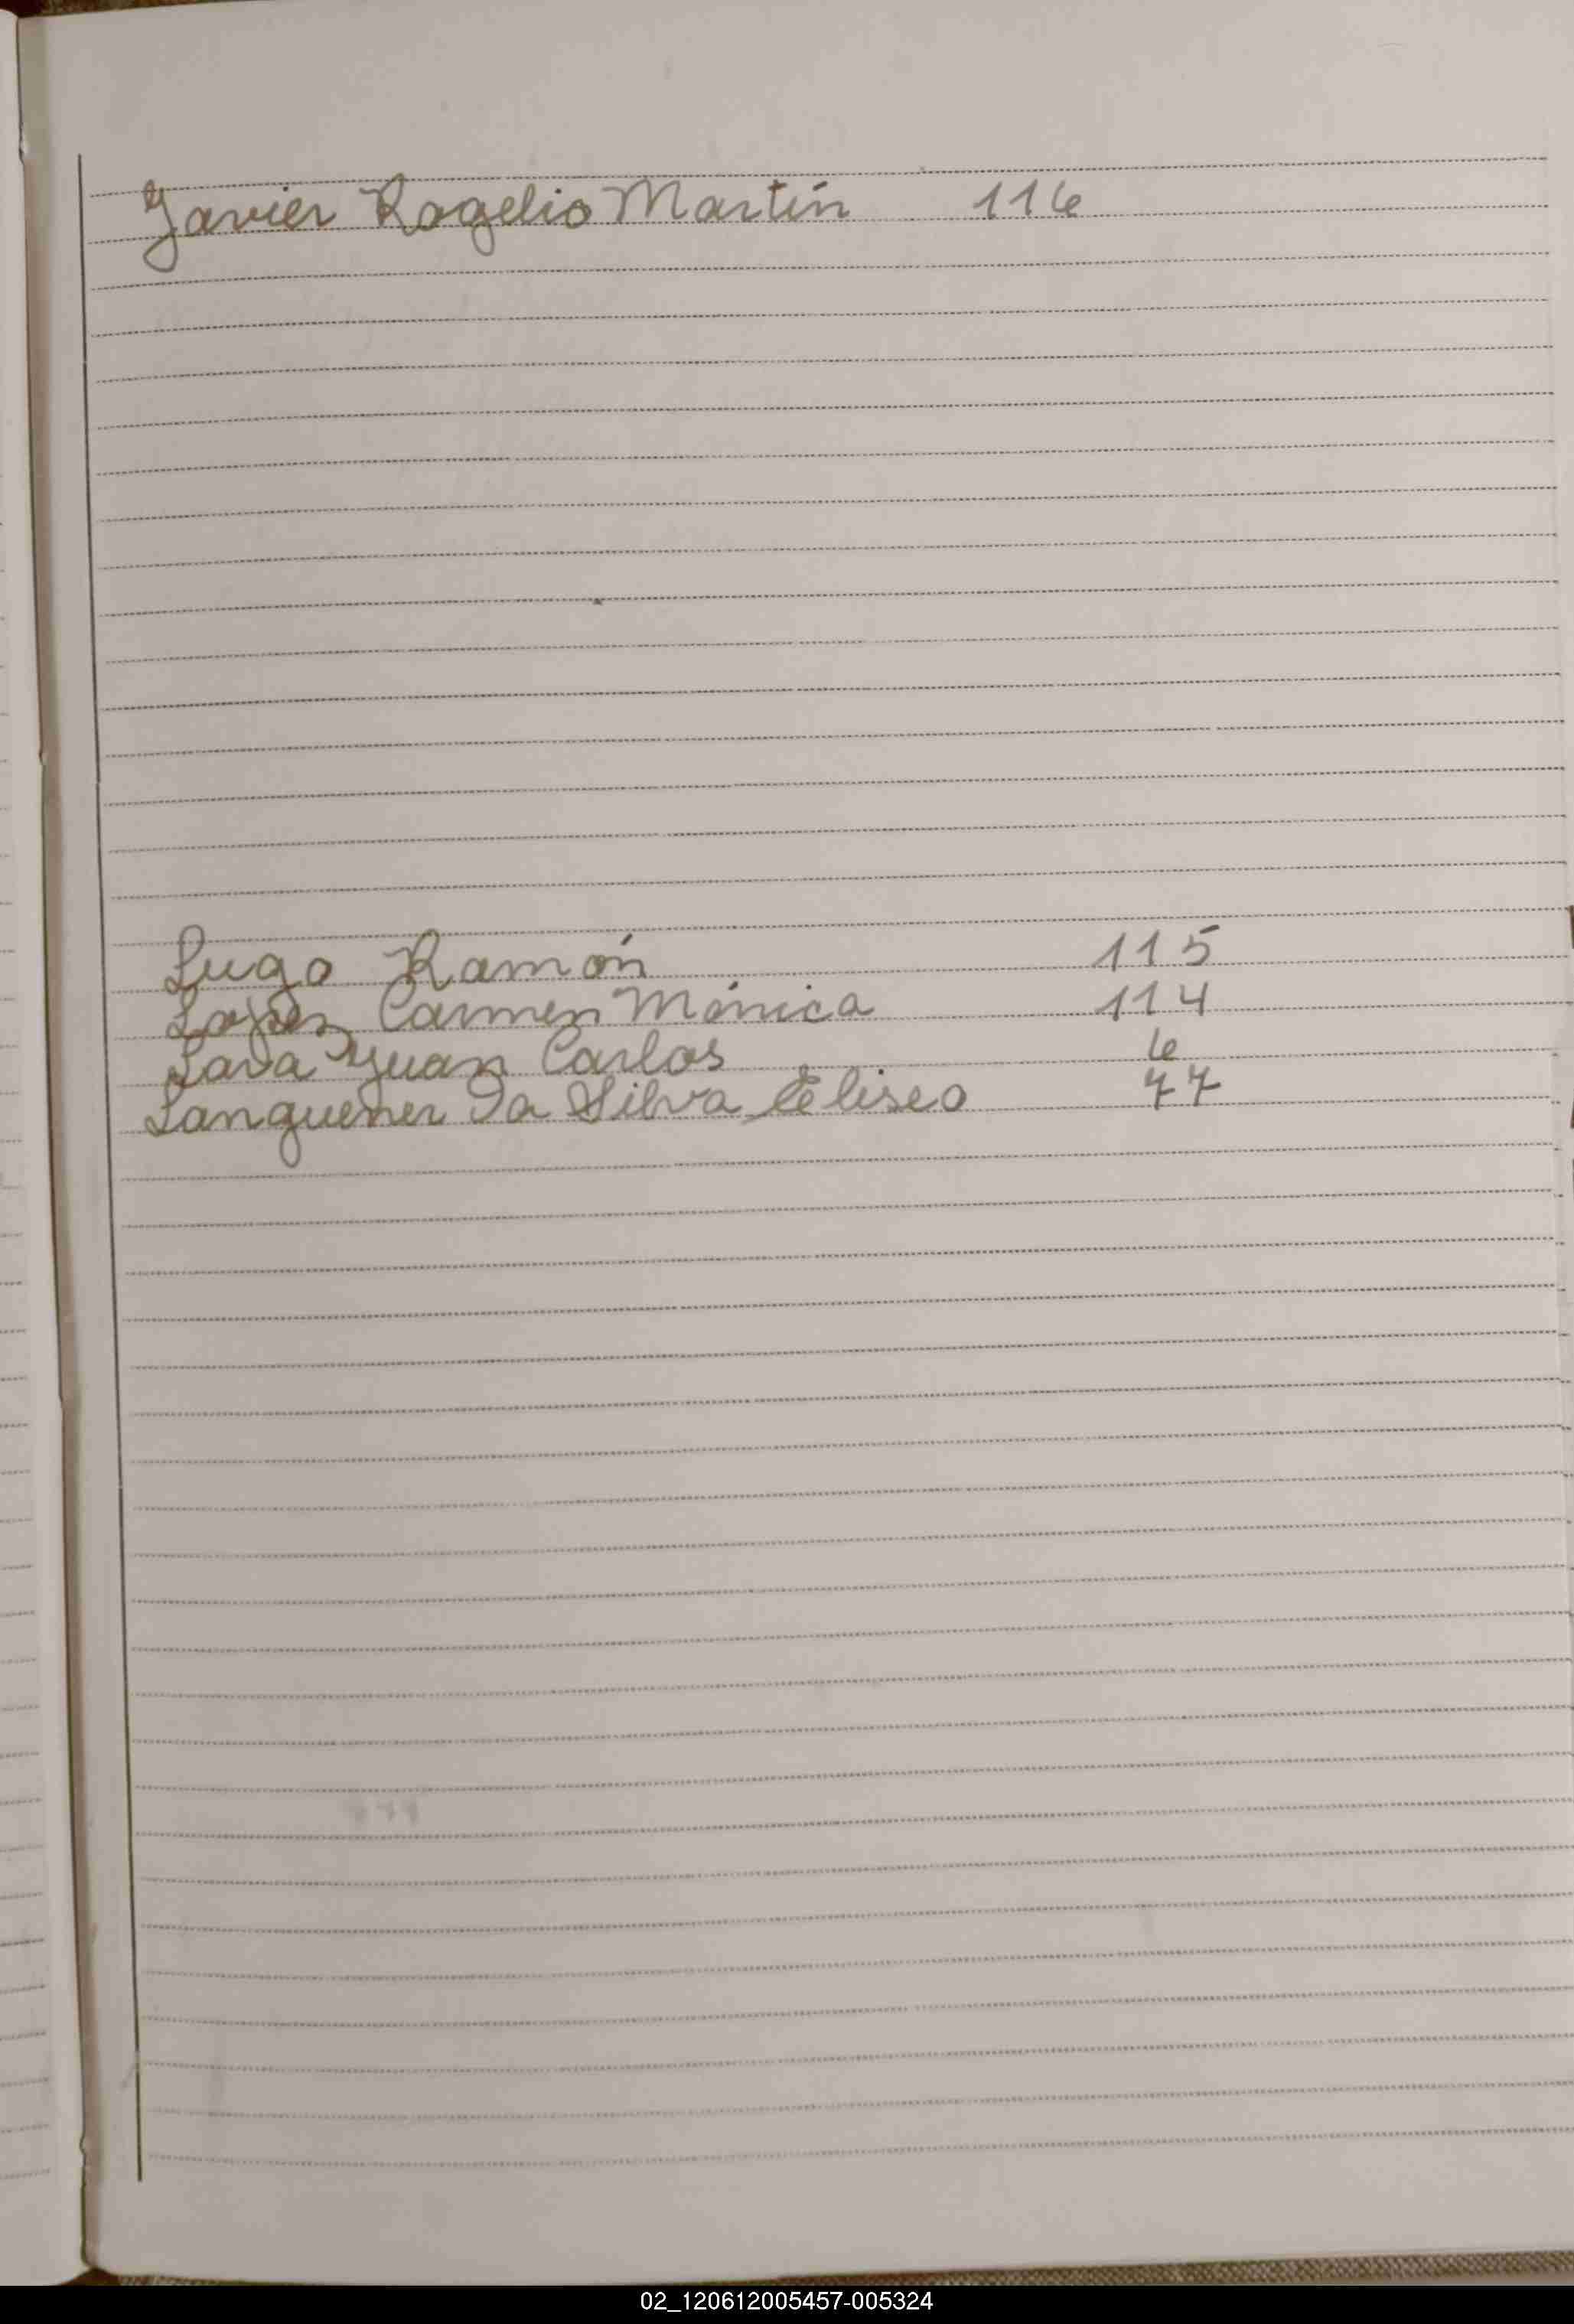 Javier Rogelio Martín 116
Lugo Ramón 115
Lopez Carmen Mónica 114
Lara Juan Carlos 6
Languener Da Silva Eliseo 77
02_120612005457-005324